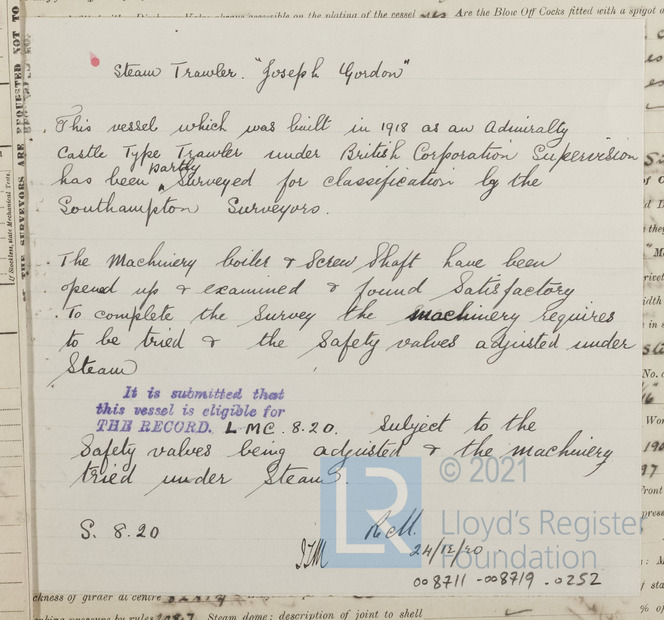 Are the Blow Off Cocks fitted with a spigot
Steam Trawler. "Joseph Gordon"
This vessel which was built in 1918 as an Admiralty
Castle Type Trawler under British Corporation Supervision
has been partly Surveyed for classification by the
Southampton Surveyors.
The Machinery boiler & Screw Shaft have been
opened up & examined & found Satisfactory
To complete the Survey the machinery requires
to be tried & the Safety valves adjusted under
Steam
It is submitted that
this vessel is eligible for
THE RECORD. LMC. 8.20. Subject to the
Safety valves being adjusted & the machinery
tried under Steam.
S. 8.20
24/12/20
008711-008719-0252
© 2021
LR
Lloyd's Register
Foundation
ckness of girder at centre
Steam dome: description of joint to shell